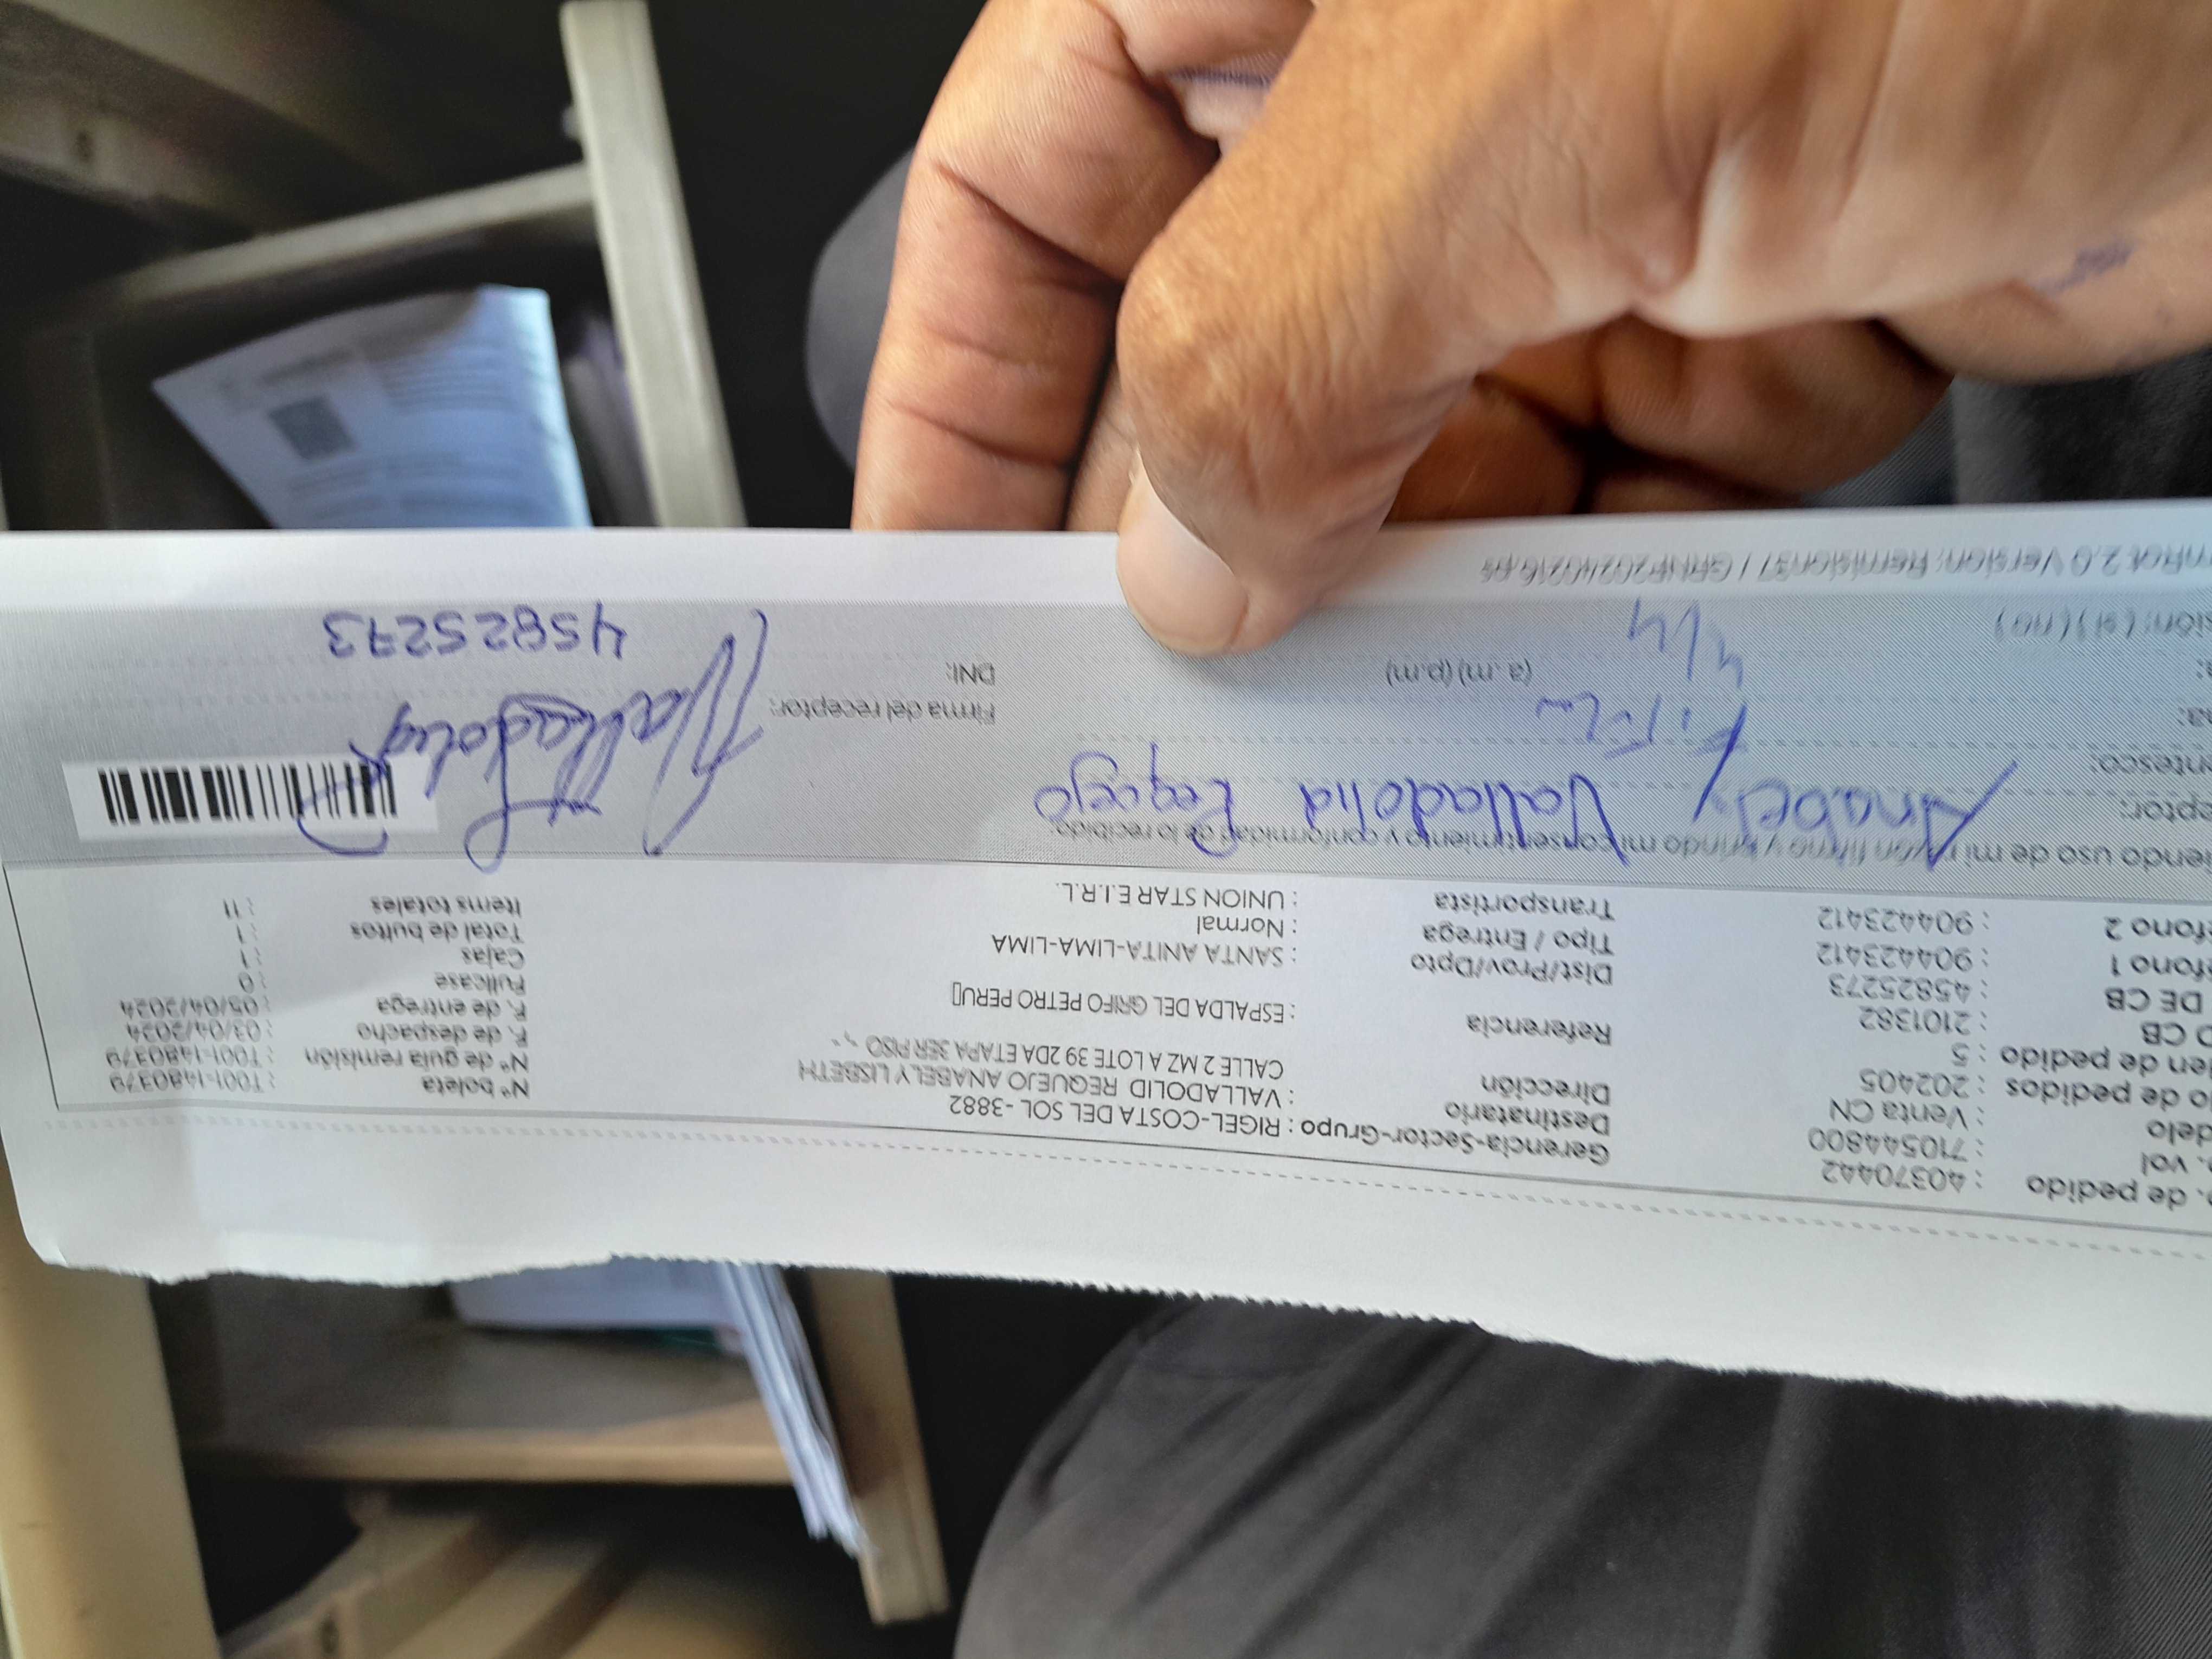 . de pedido : 40370442
. vol : 710544800 Gerencia-Sector-Grupo : RIGEL-COSTA DEL SOL -3882
delo : Venta CN Destinatario : VALLADOLID REQUEJO ANABELY LISBETH Nº boleta : T001-1480379
o de pedidos : 202405 Dirección CALLE 2 MZ A LOTE 39 2DA ETAPA 3ER PISO Nº de guía remisión : T001-1480379
den de pedido : 5 F. de despacho : 03/04/2024
O CB : 2101382 Referencia : ESPALDA DEL GRIFO PETRO PERU[] F. de entrega : 05/04/2024
DE CB : 45825273 Fullcase : 0
éfono 1 : 904423412 Dist/Prov/Dpto : SANTA ANITA-LIMA-LIMA Cajas : 1
éfono 2 : 904423412 Tipo / Entrega : Normal Total de bultos : 1
Transportista : UNION STAR E.I.R.L. Items totales : 11
iendo uso de mi razón firmo y brindo mi consentimiento y conformidad de lo recibido:
eptor: Anabely Valladolid Requejo
entesco:
na: Firma del receptor: Valladolid
a: 4/4 (a .m) (p.m) DNI: 45825273
sión: ( si ) ( no )
nRot 2.0 Version: Remision37 / GRNF20240216.ps